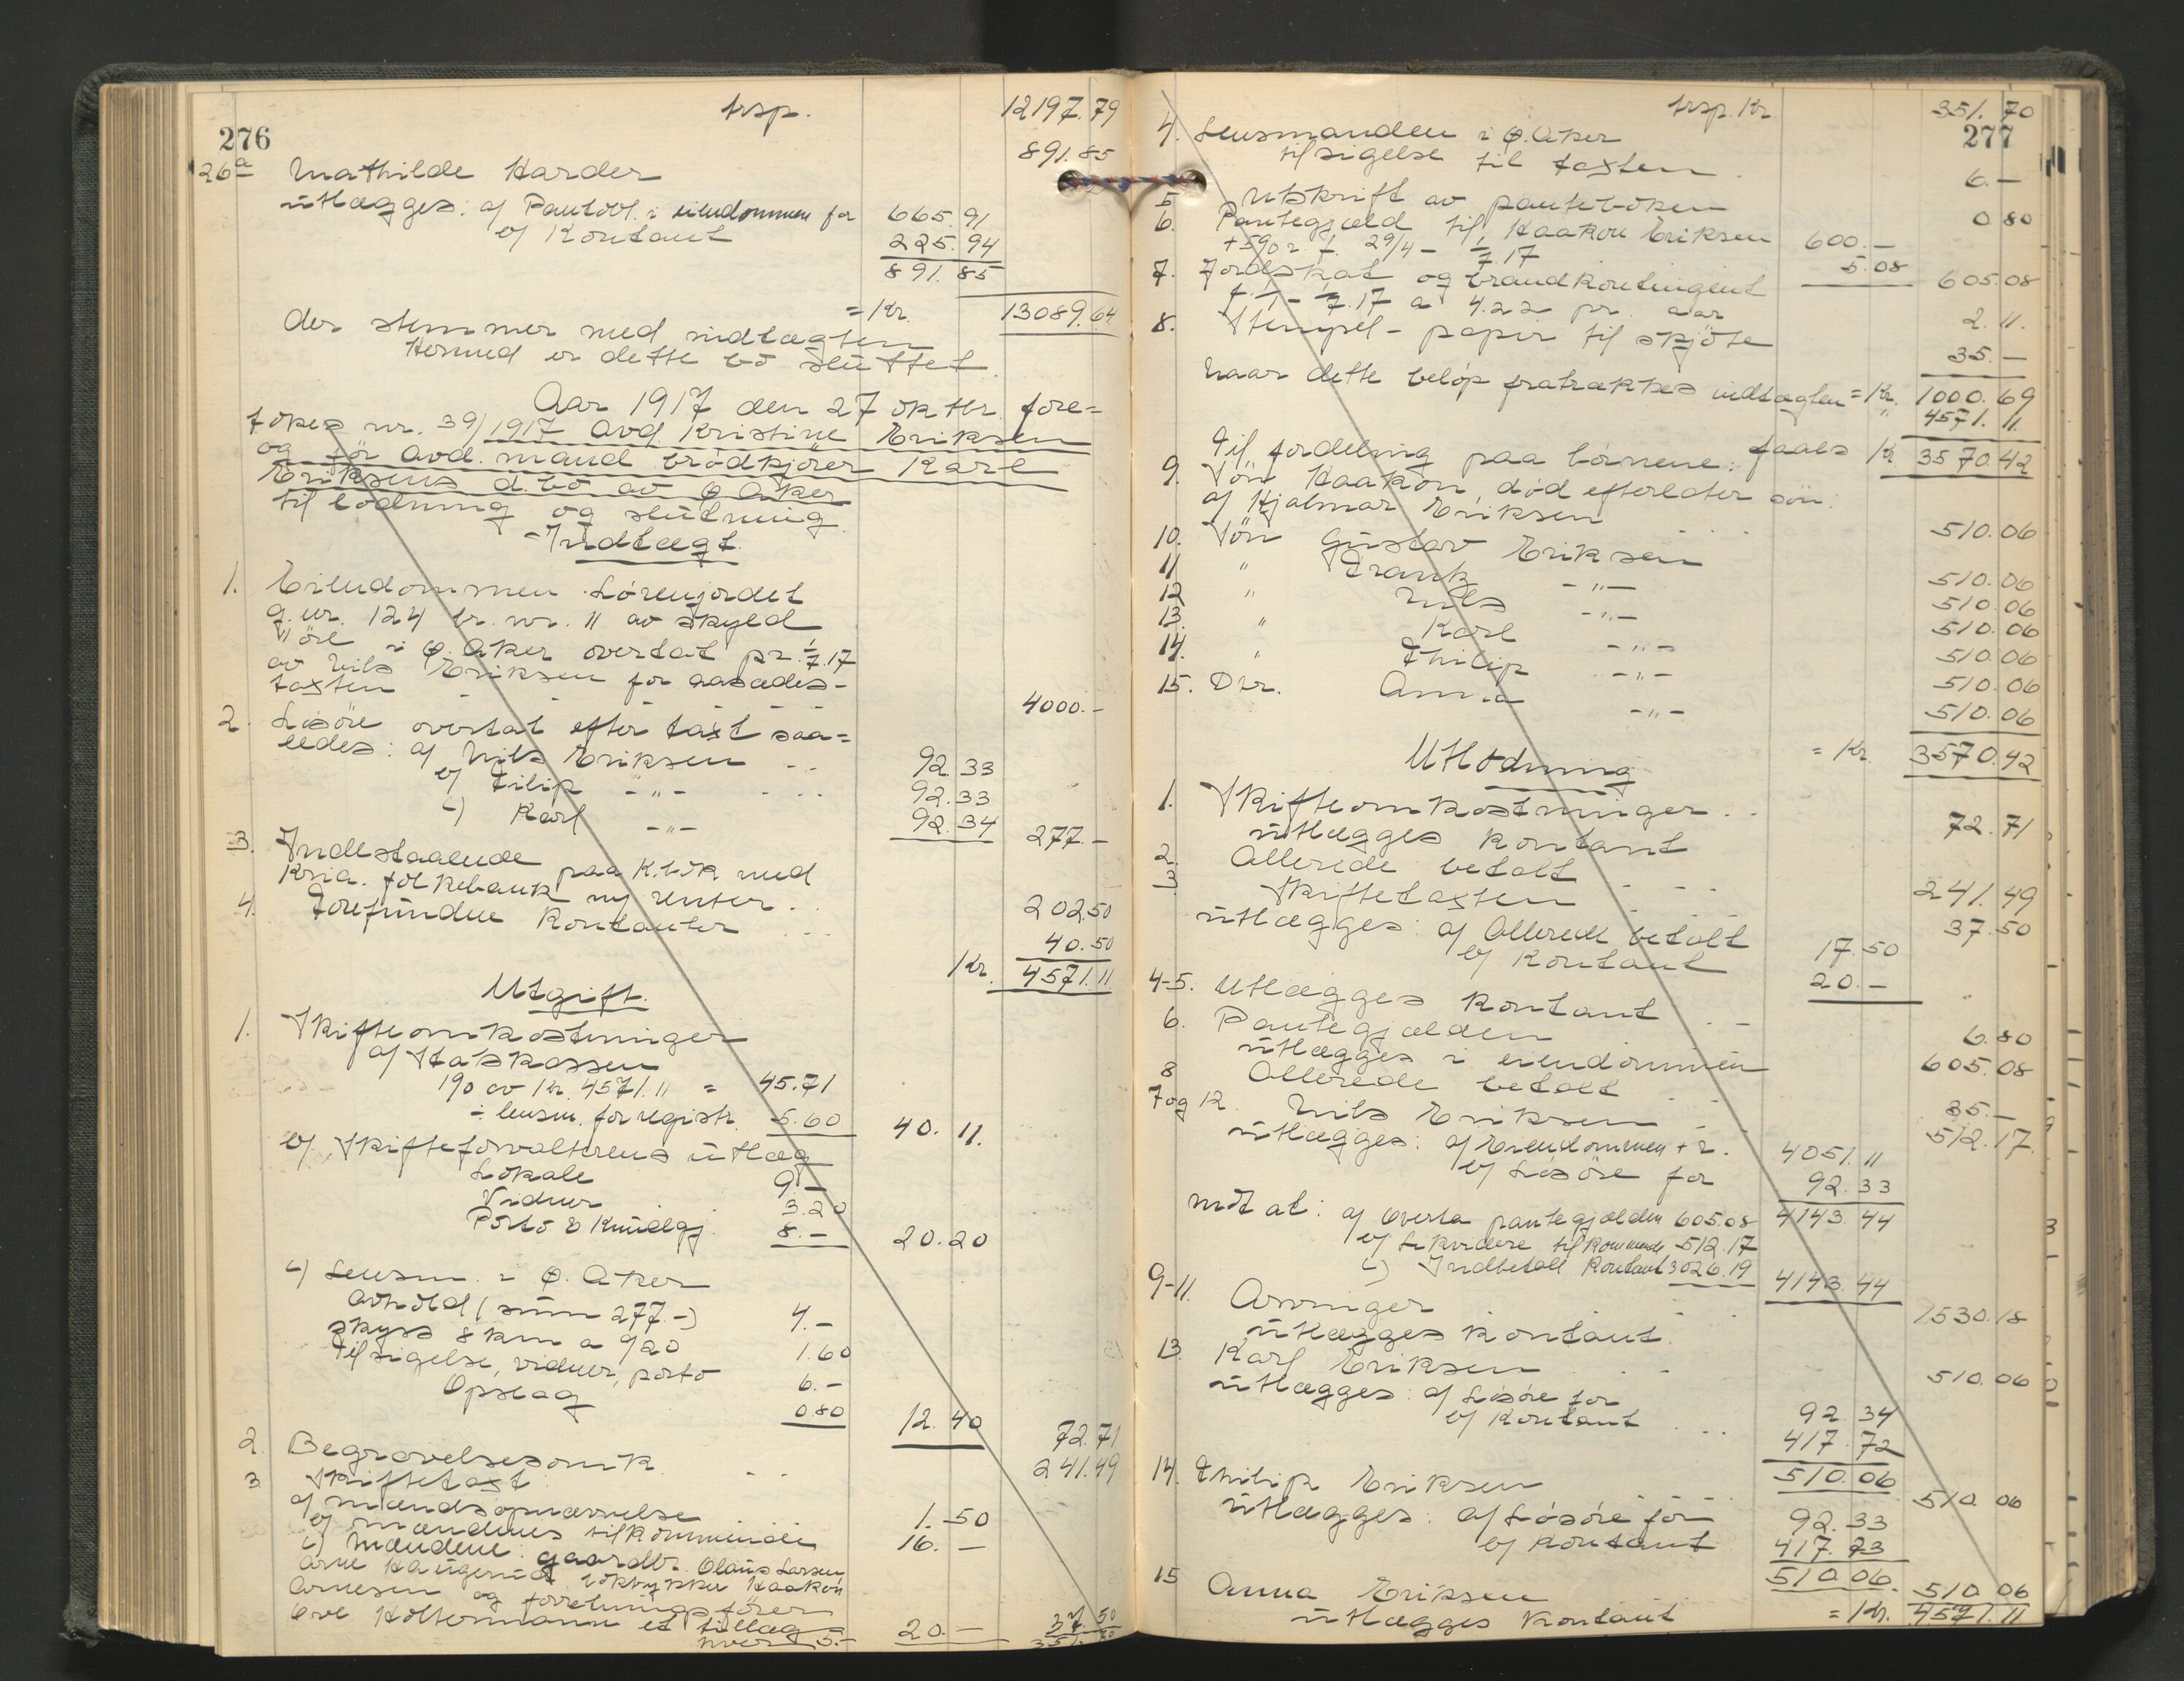 276
trsp. 12197.79
26a Mathilde Harder 891.85
utlægges: a/ Pantobl. i eiendommen for 665.91
b/ Kontant 225.94
891.85
= Kr. 13089.64
der stemmer med indtægten
Hermed er dette bo sluttet.
Aar 1917 den 27 oktbr. fore=
tokes nr. 39/1917 avd. Kristine Eriksen
og før avd. mand brödkjörer Karl
Eriksens d.bo av Ø. Aker
til lodning og slutning.
Indtægt.
1. Eiendommen Lörenjordet
g.nr. 124 br. nr. 11 av skyld
11 öre i Ø. Aker overtat pr. 1/7.17
av Nils Eriksen for aasædes-
taxten - - - 4000.-
2. Lösöre overtat efter taxt saa=
ledes: a/ Nils Eriksen 92.33
b/ Filip -"- 92.33
c) Karl -"- 92.34 277.-
3. Indestaaende paa K. bok med
Kria. folkebank m/ renter 202.50
4. Forefundne Kontanter 40.50
Kr. 4571.11
Utgift.
1. Skifteomkostninger
a/ Statskassen
1% av Kr. 4571.11 = 45.71
÷ lensm. for registr. 5.60 40.11.
b/ Skifteforvalterens utlæg
Lokale 9.-
Vidner 3.20
Porto & Kundgj. 8.- 20.20
c) Lensm. i Ø. Aker
avhold (sum 277.-) 4.-
skyss 8 km a 9/20 1.60
Tilsigelse, vidner, porto 6.-
Opslag 0.80 12.40 72.71
2. Begravelsesomk. 241.49
3 Skiftetaxt
a/ mændsopnævnelse 1.50
b/ mændenes tilkommende 16.-
c) Mændene: gaardbr. Olaus Larsen
Arne Haugerud, Haakon
Arnesen og forretningsförer
Ove Holtermann et tillæg
hver 5.- 20.- 37.50
351.70
trsp. Kr. 351.70
277
4. Lensmanden i Ø. Aker
tilsigelse til taxten 6.-
5 Utskrift av panteboken 0.80
6. Pantegjæld til Haakon Eriksen 600.-
+ 5% r. f. 29/4 - 1/7.17 5.08 605.08
7. Jordskat og brandkontingent
f. 1/1 - 1/7.17 a 4.22 pr. aar 2.11.
8. Stempel-papir til skjöte 35.-
= Kr. 1000.69
Naar dette belöp fratrækkes indtægten " 4571.11
faaes Kr. 3570.42
Til fordeling paa börnene:
9. Sön Haakon, död efterlater sön:
a/ Hjalmar Eriksen 510.06
10. Sön Gustav Eriksen 510.06
11 " Frank -"- 510.06
12 " Nils -"- 510.06
13. " Karl -"- 510.06
14. " Philip -"- 510.06
15. Dtr. Anna -"- 510.06
= Kr. 3570.42
Utlodning
1. Skifteomkostninger 72.71
utlægges kontant
2. Allerede betalt 241.49
3 Skiftetaxten 37.50
utlægges: a/ Allerede betalt 17.50
b/ Kontant 20.-
4-5. Utlægges Kontant 6.80
6. Pantegjælden 605.08
utlægges i eiendommen
8 Allerede betalt 35.-
7 og 12. Nils Eriksen 512.17.
utlægges: a/ Eiendommen + r. 4051.11
b/ Lösöre for 92.33
4143.44
mot at: a/ Overta pantegjælden 605.08
b/ Likvidere tilkommende 512.17
c) Indbetale Kontant 3026.19 4143.44
9-11. Arvinger 1530.18
utlægges kontant.
13. Karl Eriksen 510.06
utlægges: a/ Lösöre for 92.34
b/ Kontant 417.72
510.06
14. Philip Eriksen 510.06
utlægges: a/ Lösöre for 92.33
b/ Kontant 417.73
510.06.
15 Anna Eriksen 510.06
utlægges Kontant = Kr. 4571.11